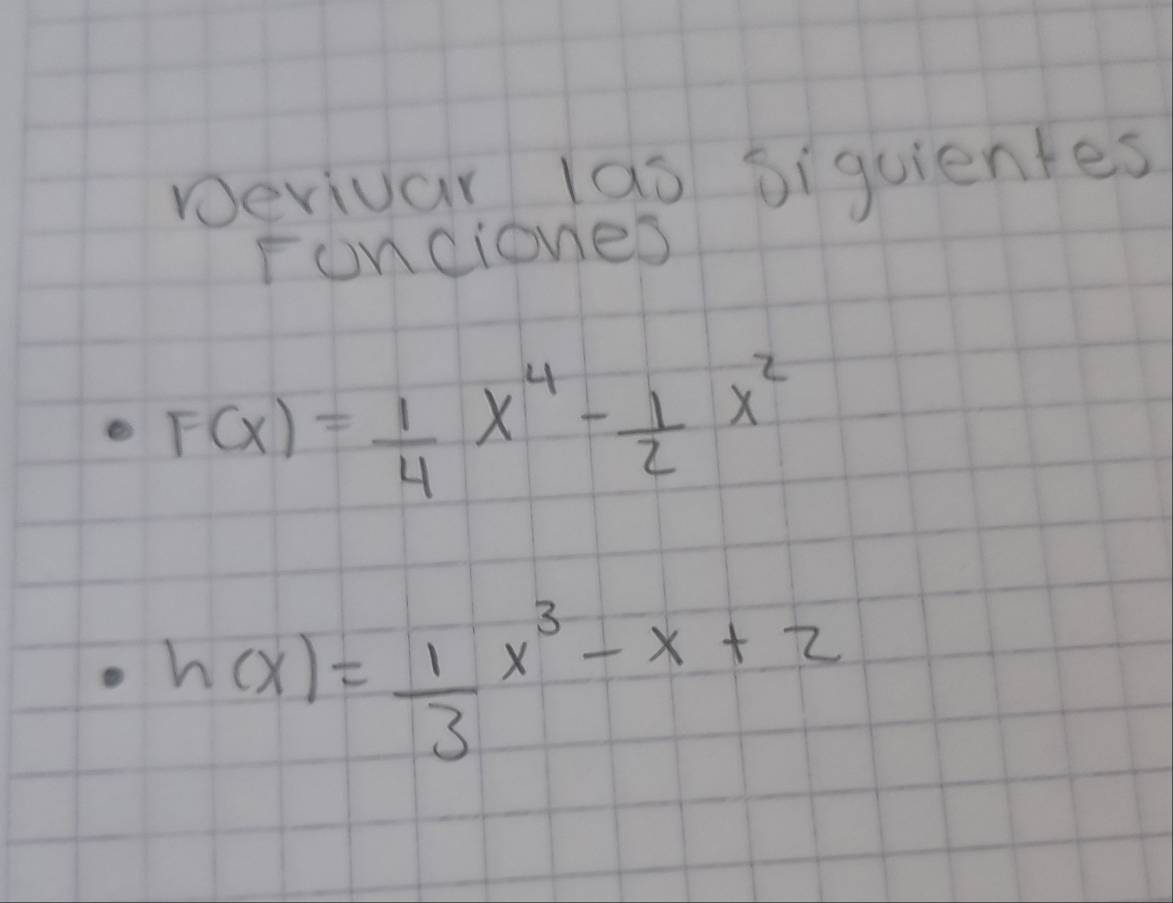 Derivar las siguientes
Funciones
• F(x) = 1/4 x⁴ - 1/2 x²
• h(x) = 1/3 x³ - x + 2